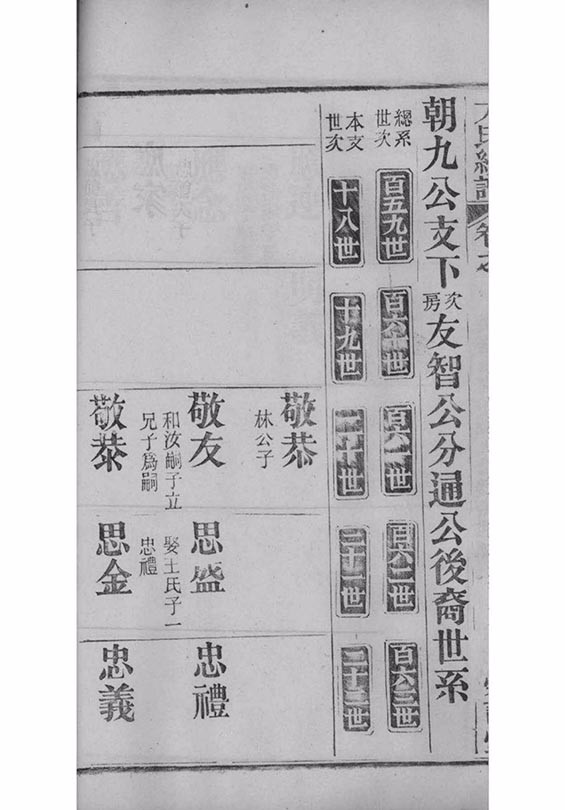 氏總譜
卷之
朝九公支下次房友智公分通公後裔世系
總系世次
百五九世
百六十世
百六一世
百六二世
百六三世
本支世次
十八世
十九世
二十世
二十一世
二十二世
敬恭
林公子
敬友
和汝嗣子立
兄子爲嗣
思盛
娶王氏子一
忠禮
忠禮
敬恭
思金
忠義